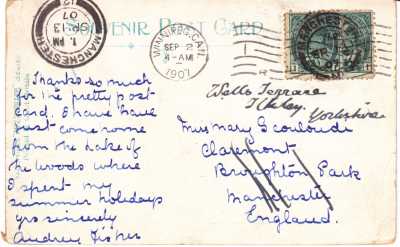 SOUVENIR POST CARD
MANCHESTER
1. PM
SP 13
07
WINNIPEG, CAN.
SEP 2
4-AM
1907
Thanks so much
for the pretty post
card. I have have
just come home
from the Lake of
the Woods where
I spent my
summer holidays
yrs sincerely
Audrey Fisher
Wells Terrace
Ilkley.
Yorkshire
Miss Mary Gouloudi
Claremont
Broughton Park
Manchester
England.